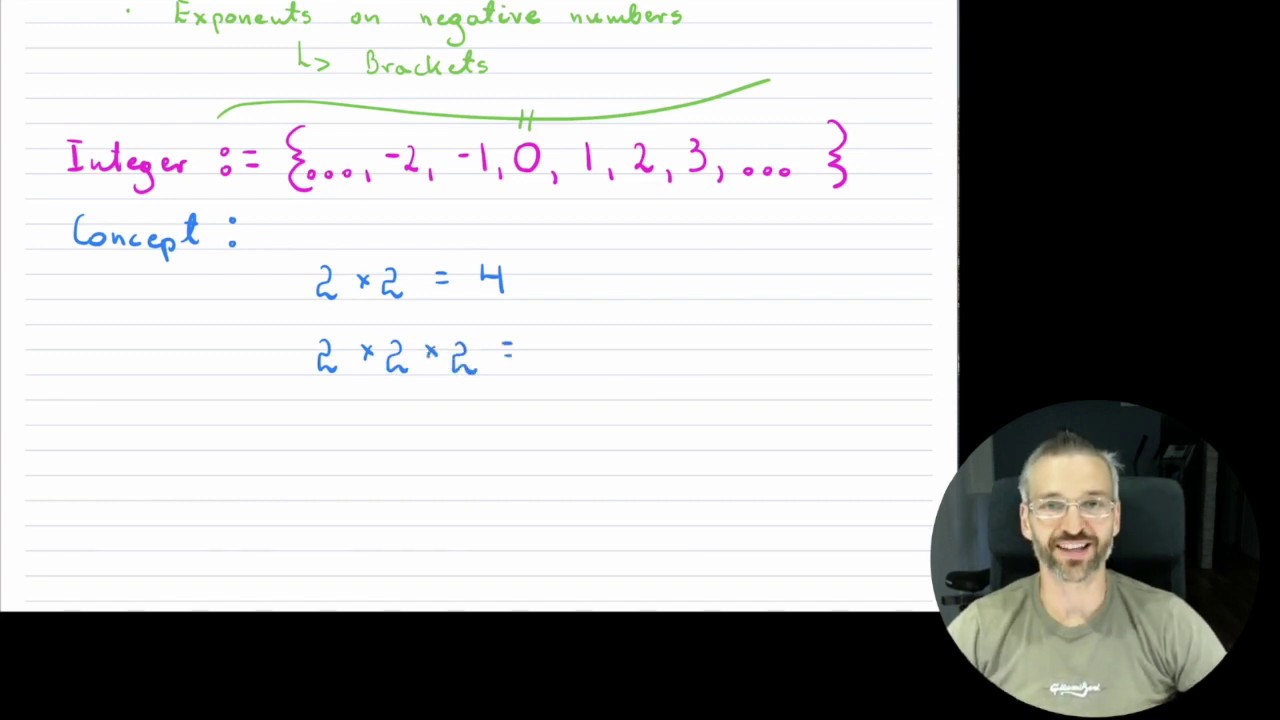 · Exponents on negative numbers
↳ Brackets
Integer := {..., -2, -1, 0, 1, 2, 3, ... }
Concept :
2 × 2 = 4
2 × 2 × 2 =